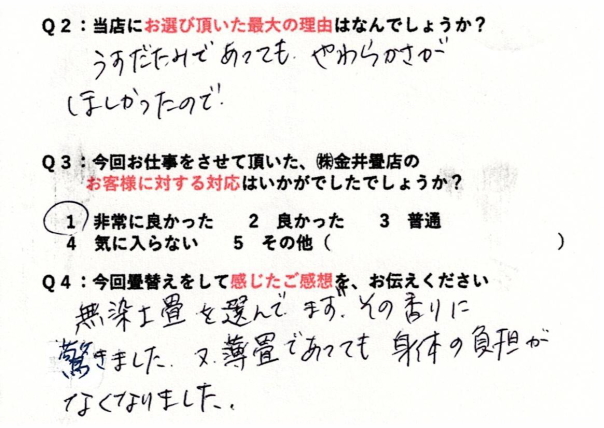 Q2：当店にお選び頂いた最大の理由はなんでしょうか？
うすだたみであっても、やわらかさが
ほしかったので
Q3：今回お仕事をさせて頂いた、㈱金井畳店の
お客様に対する対応はいかがでしたでしょうか？
1 非常に良かった 2 良かった 3 普通
4 気に入らない 5 その他（ ）
Q4：今回畳替えをして感じたご感想を、お伝えください
無染土畳を選んでまず、その香りに
驚きました。又、薄畳であっても身体の負担が
なくなりました。